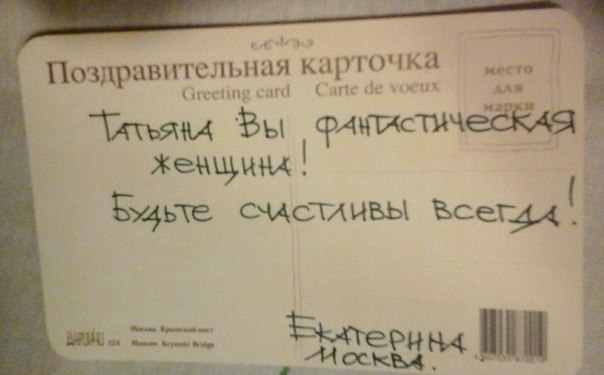 Поздравительная карточка
Greeting card Carte de voeux
место
для
марки
Татьяна Вы фантастическая
женщина!
Будьте счастливы всегда!
Москва. Крымский мост
Moscow. Krymski Bridge
Екатерина
Москва.